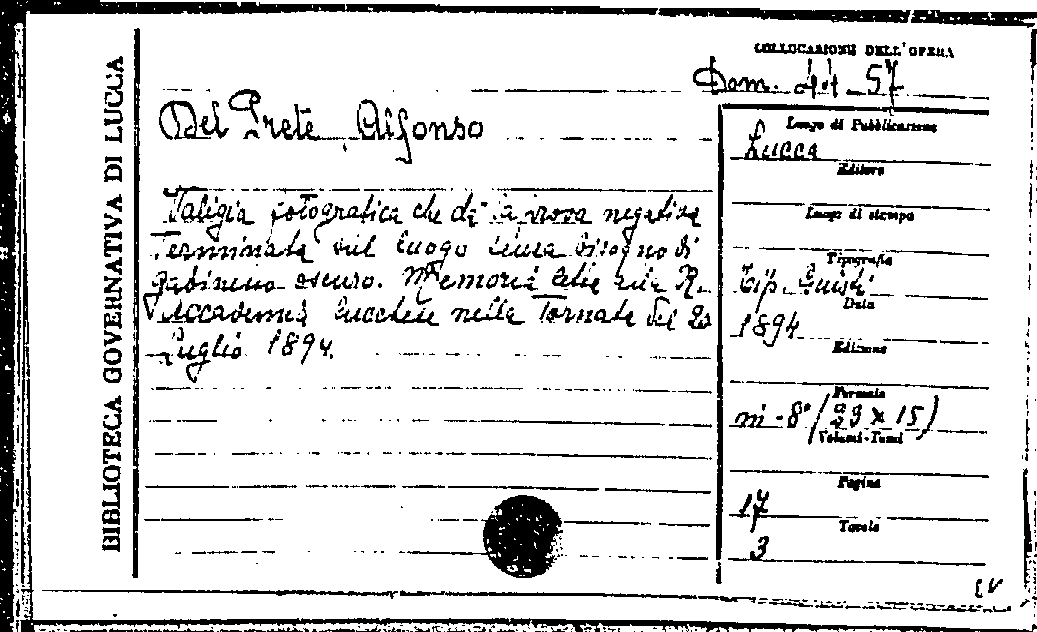 BIBLIOTECA GOVERNATIVA DI LUCCA
COLLOCAZIONE DELL'OPERA
Dom. 44. 57
Del Prete Alfonso
Valigia fotografica che dà la prova negativa
terminata sul luogo senza bisogno di
gabinetto oscuro. Memoria letta alla R.
Accademia Lucchese nella Tornata del 20
Luglio 1894.
Luogo di Pubblicazione
Lucca
Editore
Luogo di stampa
Tipografia
Tip. Giusti
Data
1894
Edizione
Formato
in-8° (23 x 15)
Volumi-Tomi
Pagine
17
Tavole
3